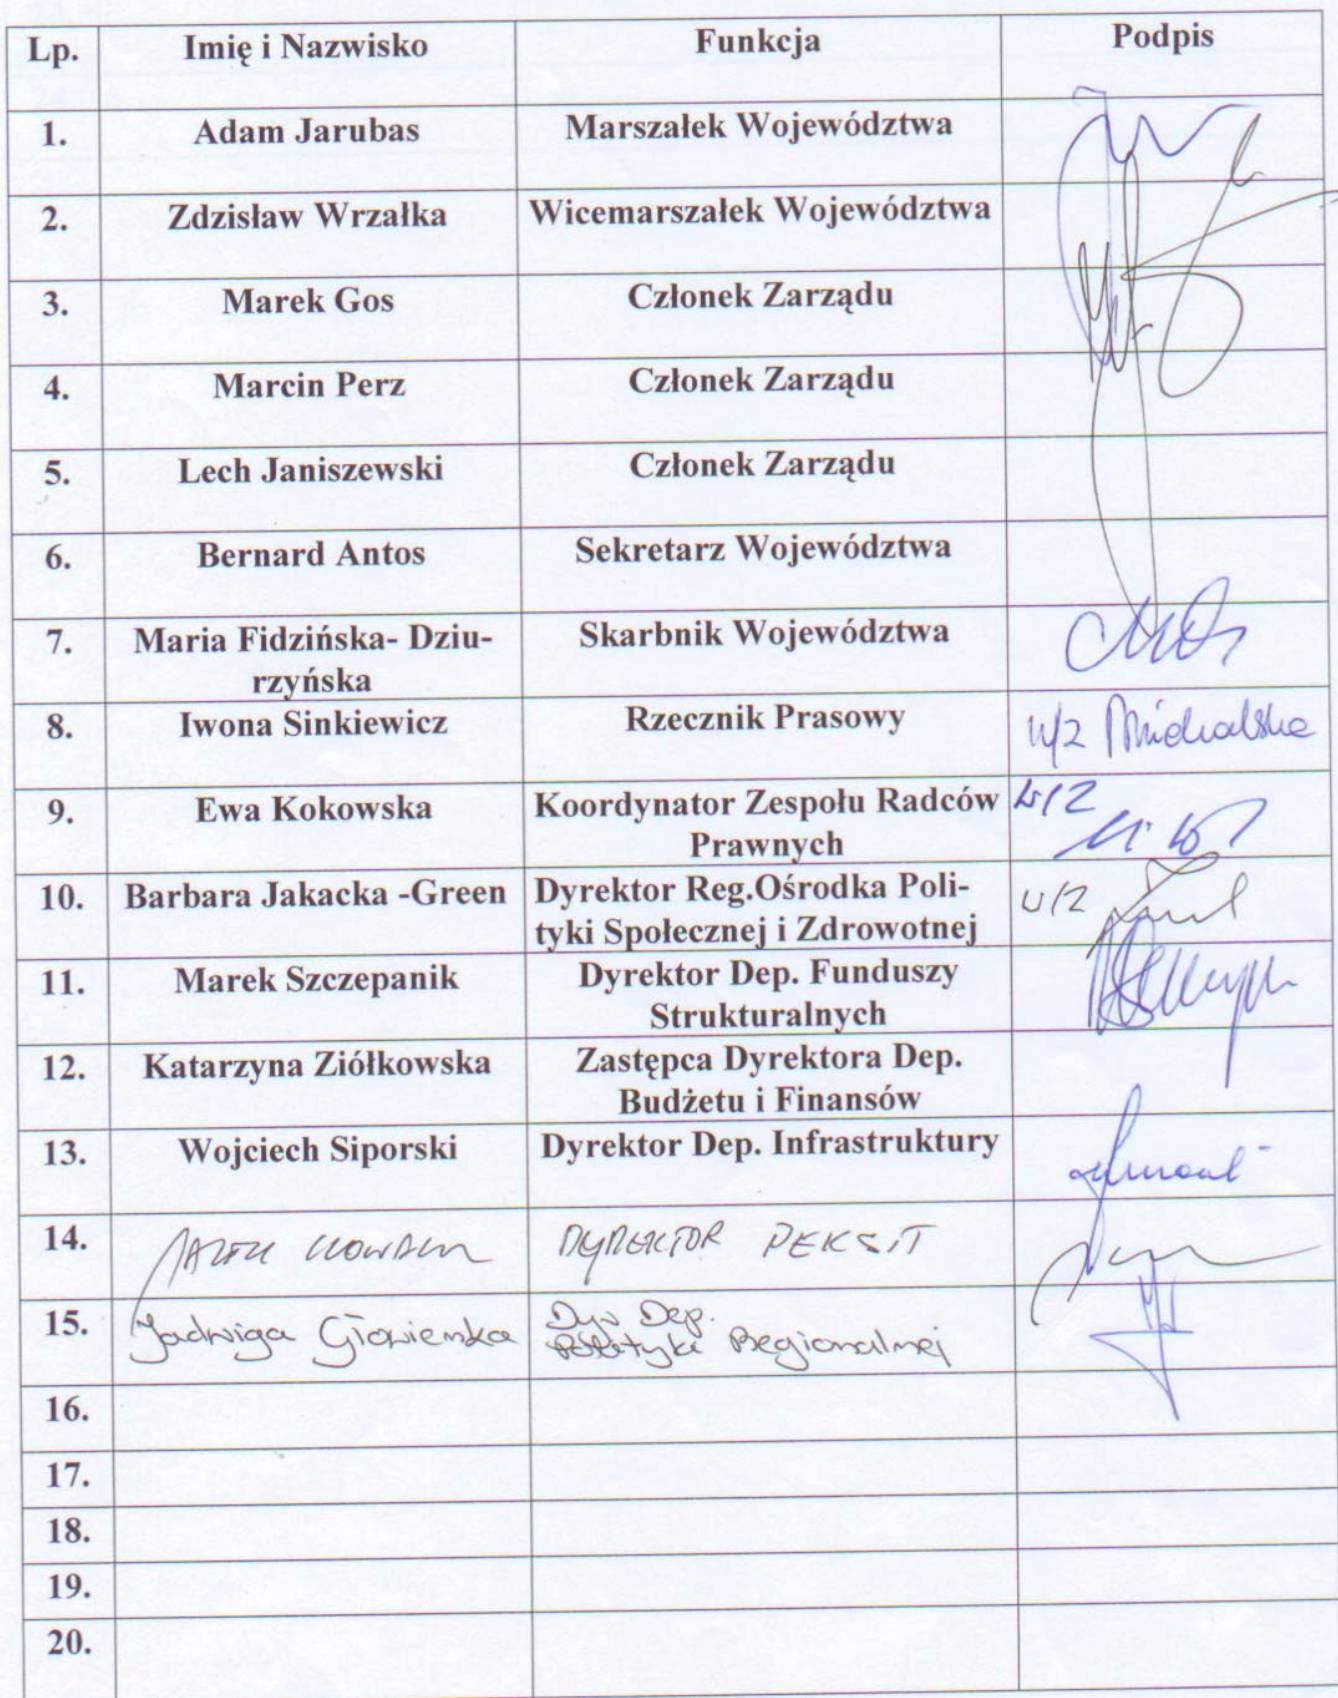 Lp. Imię i Nazwisko Funkcja Podpis
1. Adam Jarubas Marszałek Województwa
2. Zdzisław Wrzałka Wicemarszałek Województwa
3. Marek Gos Członek Zarządu
4. Marcin Perz Członek Zarządu
5. Lech Janiszewski Członek Zarządu
6. Bernard Antos Sekretarz Województwa
7. Maria Fidzińska- Dziu- Skarbnik Województwa
rzyńska
8. Iwona Sinkiewicz Rzecznik Prasowy w/z Michalska
9. Ewa Kokowska Koordynator Zespołu Radców w/z
Prawnych
10. Barbara Jakacka -Green Dyrektor Reg.Ośrodka Poli- w/z
tyki Społecznej i Zdrowotnej
11. Marek Szczepanik Dyrektor Dep. Funduszy
Strukturalnych
12. Katarzyna Ziółkowska Zastępca Dyrektora Dep.
Budżetu i Finansów
13. Wojciech Siporski Dyrektor Dep. Infrastruktury
14. DYREKTOR
15. Jadwiga Dyr Dep.
Polityki Regionalnej
16.
17.
18.
19.
20.